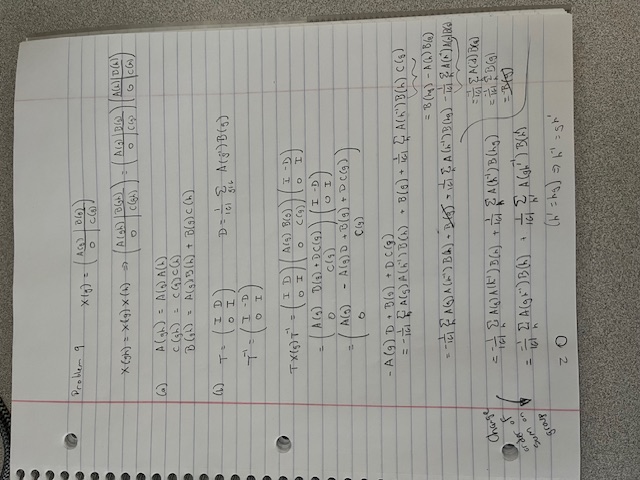 Problem 9
X(g) = ( A(g) | B(g) / 0 | C(g) )
X(gh) = X(g) X(h) ⇒ ( A(gh) | B(gh) / 0 | C(gh) ) = ( A(g) | B(g) / 0 | C(g) ) ( A(h) | D(h) / 0 | C(h) )
(a) A(gh) = A(g) A(h)
C(gh) = C(g) C(h)
B(gh) = A(g) B(h) + B(g) C(h)
(b) T = ( I D / 0 I ) D = 1/|G| Σ_{g∈G} A(g⁻¹) B(g)
T⁻¹ = ( I -D / 0 I )
T X(g) T⁻¹ = ( I D / 0 I ) ( A(g) B(g) / 0 C(g) ) ( I -D / 0 I )
= ( A(g) B(g) + D C(g) / 0 C(g) ) ( I -D / 0 I )
= ( A(g) - A(g) D + B(g) + D C(g) / 0 C(g) )
- A(g) D + B(g) + D C(g)
= -1/|G| Σ_h A(g) A(h⁻¹) B(h) + B(g) + 1/|G| Σ_h A(h⁻¹) B(h) C(g)
= B(hg) - A(h) B(g)
= -1/|G| Σ_h A(g) A(h⁻¹) B(h) + B(g) + 1/|G| Σ_h A(h⁻¹) B(hg) - 1/|G| Σ_h A(h⁻¹) A(h) B(g)
= 1/|G| Σ_h A(id) B(g)
= 1/|G| Σ_h B(g)
= B(g)
= -1/|G| Σ_h A(g) A(h⁻¹) B(h) + 1/|G| Σ_h A(h⁻¹) B(hg)
Change
order of
sum on
group
= -1/|G| Σ_h A(gh⁻¹) B(h) + 1/|G| Σ_h' A(gh'⁻¹) B(h')
(h' = hg) ⇒ h⁻¹ = gh'⁻¹
= 0